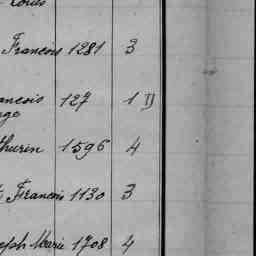 Louis
François 1281 3
ancois 127 1 D
nge
thurin 1596 4
François 1130 3
seph Marie 1708 4